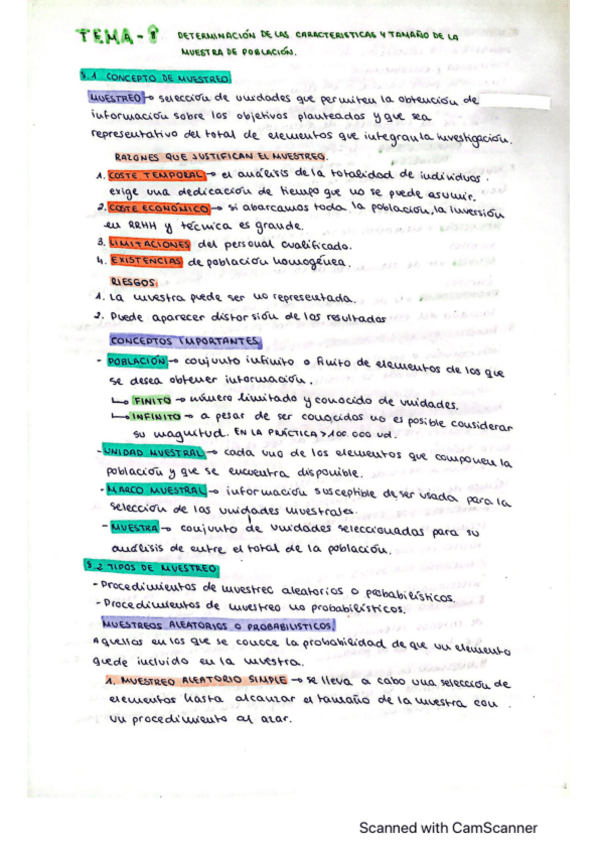 TEMA-8 DETERMINACIÓN DE LAS CARACTERISTICAS Y TAMAÑO DE LA
MUESTRA DE POBLACIÓN.
8.1 CONCEPTO DE MUESTREO
MUESTREO → selección de unidades que permiten la obtención de
información sobre los objetivos planteados y que sea
representativo del total de elementos que integran la investigación.
RAZONES QUE JUSTIFICAN EL MUESTREO.
1. COSTE TEMPORAL → el análisis de la totalidad de individuos.
exige una dedicación de tiempo que no se puede asumir.
2. COSTE ECONÓMICO → si abarcamos toda la población, la inversión
en RRHH y técnica es grande.
3. LIMITACIONES del personal cualificado.
4. EXISTENCIAS de población homogénea.
RIESGOS:
1. La muestra puede ser no representada.
2. Puede aparecer distorsión de los resultados
CONCEPTOS IMPORTANTES
- POBLACIÓN → conjunto infinito o finito de elementos de los que
se desea obtener información.
↳ FINITO → número limitado y conocido de unidades.
↳ INFINITO → a pesar de ser conocidos no es posible considerar
su magnitud. EN LA PRÁCTICA > 100.000 ud.
- UNIDAD MUESTRAL → cada uno de los elementos que componen la
población y que se encuentra disponible.
- MARCO MUESTRAL → información susceptible de ser usada para la
selección de las unidades muestrales.
- MUESTRA → conjunto de unidades seleccionadas para su
análisis de entre el total de la población.
8.2 TIPOS DE MUESTREO
- Procedimientos de muestreo aleatorios o probabilísticos.
- Procedimientos de muestreo no probabilísticos.
MUESTREOS ALEATORIOS O PROBABILISTICOS.
Aquellos en los que se conoce la probabilidad de que un elemento
quede incluido en la muestra.
1. MUESTREO ALEATORIO SIMPLE → se lleva a cabo una selección de
elementos hasta alcanzar el tamaño de la muestra con
un procedimiento al azar.
Scanned with CamScanner